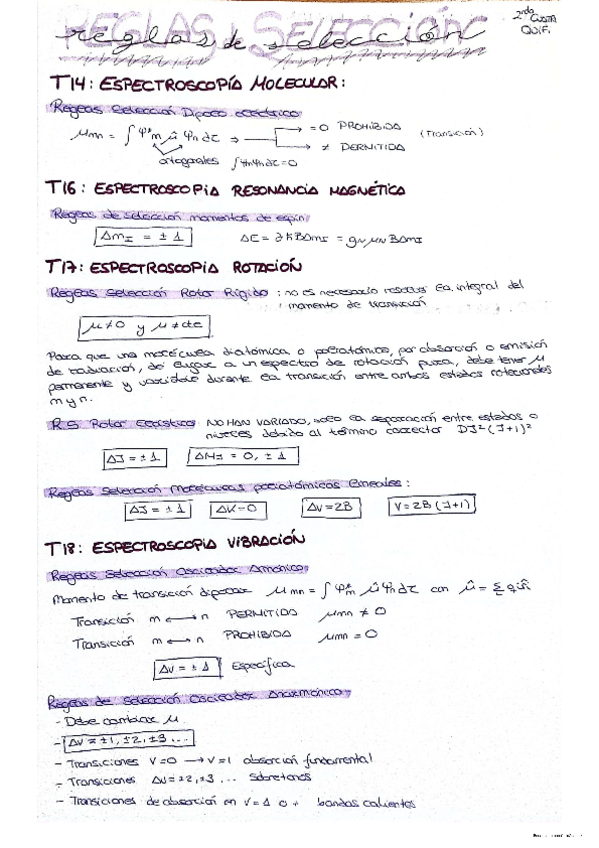 REGLAS SELECCIÓN
reglas de selección
2nda Cuatri
QUIF.
T14: ESPECTROSCOPÍA MOLECULAR:
Reglas Selección Dipolo eléctrico
μmn = ∫ Ψ*m μ̂ Ψn dτ ⇒ = 0 PROHIBIDA (Transición)
≠ PERMITIDA
ortogonales ∫ΨmΨn dτ = 0
T16: ESPECTROSCOPIA RESONANCIA MAGNÉTICA
Reglas de selección momentos de espín
ΔmI = ± 1 ΔE = ƛKBΔmI = gN μN BΔmI
T17: ESPECTROSCOPIA ROTACIÓN
Reglas Selección Rotor Rígido: no es necesario resolver la integral del
momento de transición
μ≠0 y μ≠cte
Para que una molécula diatómica o poliatómica, por absorción o emisión
de radiación, de lugar a un espectro de rotación pura, debe tener μ
permanente y variable durante la transición entre ambos estados rotacionales
m y n.
R.S Rotor Elástico NO HAN VARIADO, solo la separación entre estados o
niveles debido al término corrector DJ²(J+1)²
ΔJ = ± 1 ΔMJ = 0, ± 1
Reglas Selección Moléculas poliatómicas lineales:
ΔJ = ± 1 ΔK=0 Δν=2B ν=2B(J+1)
T18: ESPECTROSCOPIA VIBRACIÓN
Reglas Selección Oscilador Armónico
Momento de transición dipolar μmn = ∫ Ψ*m μ̂ Ψn dτ con μ̂ = Σ qi r̂i
Transición m ⟷ n PERMITIDA μmn ≠ 0
Transición m ⟷ n PROHIBIDA μmn = 0
Δv = ± 1 Específica
Reglas de Selección Oscilador Anarmónico
- Debe cambiar μ
- Δv = ±1, ±2, ±3 ...
- Transiciones V=0 → V=1 absorción fundamental
- Transiciones Δv=±2, ±3 ... Sobretonos
- Transiciones de absorción en V=1 o + bandas calientes